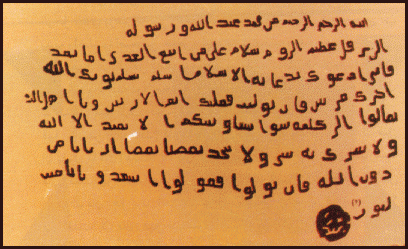 بسم الله الرحمن الرحيم من محمد عبد الله ورسوله
الى هرقل عظيم الروم سلام على من اتبع الهدى اما بعد
فانى ادعوك بدعاية الاسلام اسلم تسلم يوتك الله
اجرك مرتين فان توليت فعليك اثم الاريسين ويا اهل
تعالوا الى كلمة سوا بيننا وبينكم الا نعبد الا الله
ولا نشرك به ولا يتخذ بعضنا بعضا اربابا من
دون الله فان تولوا فقولوا اشهدوا بانا مس
لمون (؟)